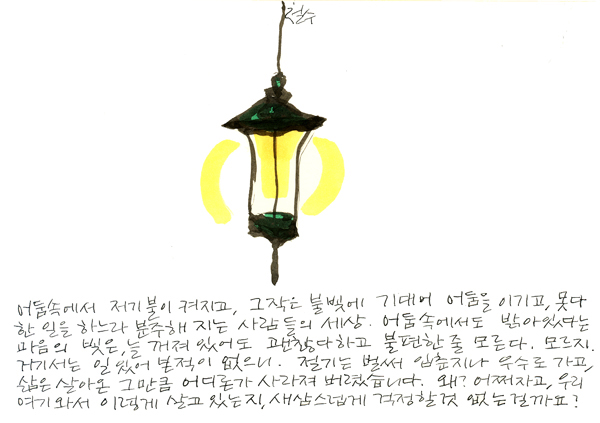 철수
어둠속에서 전기불이 켜지고, 그작은 불빛에 기대어 어둠을 이기고, 못다
한 일을 하느라 분주해 지는 사람들의 세상. 어둠속에서도 밝아있다는
마음의 빛은, 늘 꺼져 있어도 괜찮다하고 불편한줄 모른다. 모르지.
거기서는 일 있어 본적이 없으니. 절기는 벌써 입춘지나 우수로 가고,
삶은 살아온 그만큼 어디론가 사라져 버렸습니다. 왜? 어쩌자고, 우리
여기와서 이렇게 살고 있는지, 새삼스럽게 걱정할것 없는걸까요?